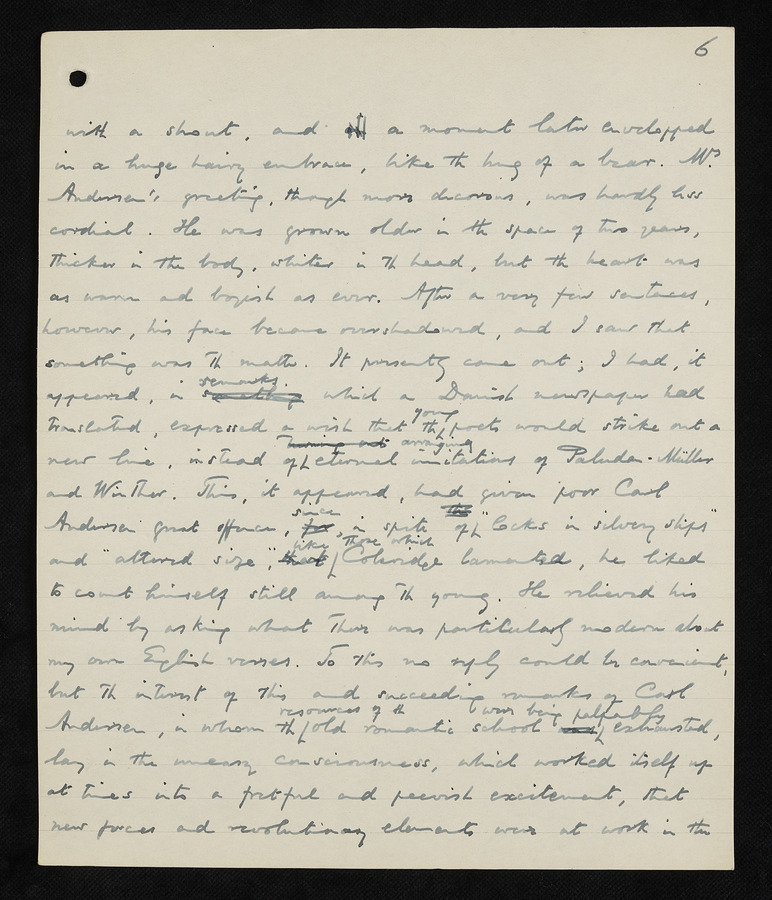 6
with a shout, and a moment later enveloped
in a huge hairy embrace, like the hug of a bear. Mrs
Andersen's greeting, though more decorous, was hardly less
cordial. He was grown older in the space of two years,
thicker in the body, whiter in the head, but the heart was
as warm and boyish as ever. After a very few sentences,
however, his face became overshadowed, and I saw that
something was the matter. It presently came out; I had, it
remarks
appeared, in something which a Danish newspaper had
young
translated, expressed a wish that the poets would strike out a
turning out arranging
new line, instead of eternal imitations of Paludan-Müller
and Winther. This, it appeared, had given poor Carl
since the
Andersen great offence, for, in spite of "locks in silvery slips"
like those which
and "altered size", that Coleridge lamented, he liked
to count himself still among the young. He relieved his
mind by asking what there was particularly modern about
my own English verses. To this no reply could be convenient,
but the interest of this and succeeding remarks of Carl
resources of the were being palpably
Andersen, in whom the old romantic school exhausted,
lay in the uneasy consciousness, which worked itself up
at times into a fretful and peevish excitement, that
new forces and revolutionary elements were at work in the